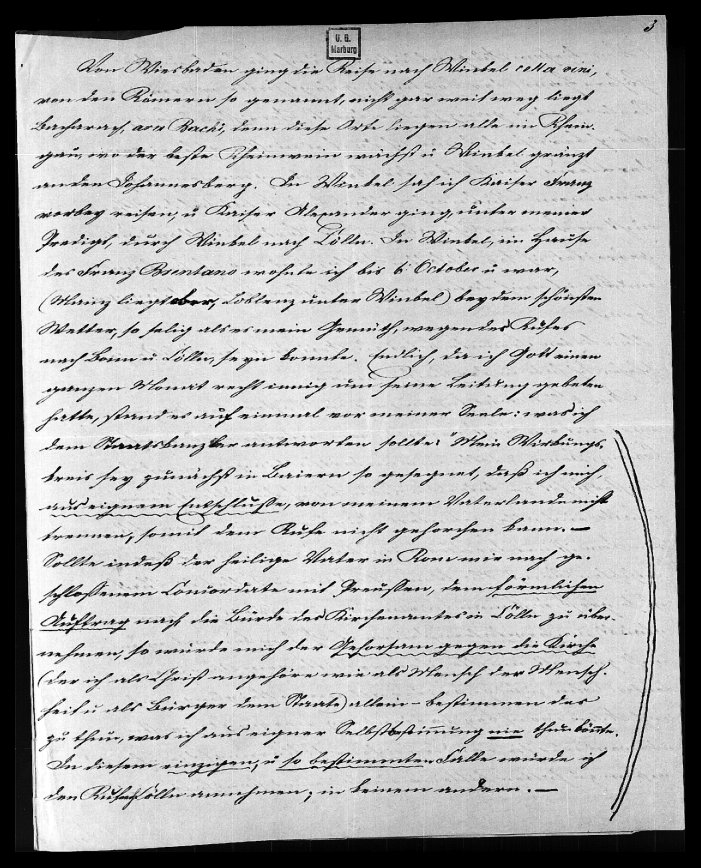 3
U. B.
Marburg
Von Wiesbaden ging die Reise nach Winkel cella vini,
von den Römern so genannt, nicht gar weit weg liegt
Bacharach, ara Bacchi, denn diese Orte liegen alle im Rhein-
gau, wo der beste Rheinwein wächst u Winkel gränzt
an den Johannesberg. In Winkel sah ich Kaiser Franz
vorbey reisen, u Kaiser Alexander ging, unter meiner
Predigt, durch Winkel nach Cölln. In Winkel, im Hause
des Franz Brentano wohnte ich bis 6 October u war,
(Mainz liegt ober, Coblenz unter Winkel) bey dem schönsten
Wetter, so selig als es mein Gemüth, wegen des Rufes
nach Bonn u Cölln, seyn konnte. Endlich, da ich Gott einen
ganzen Monat recht innig um seine Leitung gebeten
hatte, stand es auf einmal vor meiner Seele: was ich
dem Staatskanzler antworten sollte: "Mein Wirkungs-
kreis sey zunächst in Baiern so gesegnet, daß ich mich,
aus eignem Entschlusse, von meinem Vaterlande nicht
trennen, somit dem Rufe nicht gehorchen kann. —
Sollte indeß der heilige Vater in Rom mir nach ge-
schlossenem Concordate mit Preussen, dem förmlichen
Auftrag nach die Bürde des Kirchenamtes in Cölln zu über-
nehmen, so würde mich der Gehorsam gegen die Kirche
(der ich als Christ angehöre wie als Mensch der Mensch-
heit u als Bürger dem Staate) allein - bestimmen das
zu thun, was ich aus eigner Selbstbestimmung nie thun könnte.
In diesem einzigen, u so bestimmten Falle würde ich
den Ruf nach Cölln annehmen, in keinem andern. —